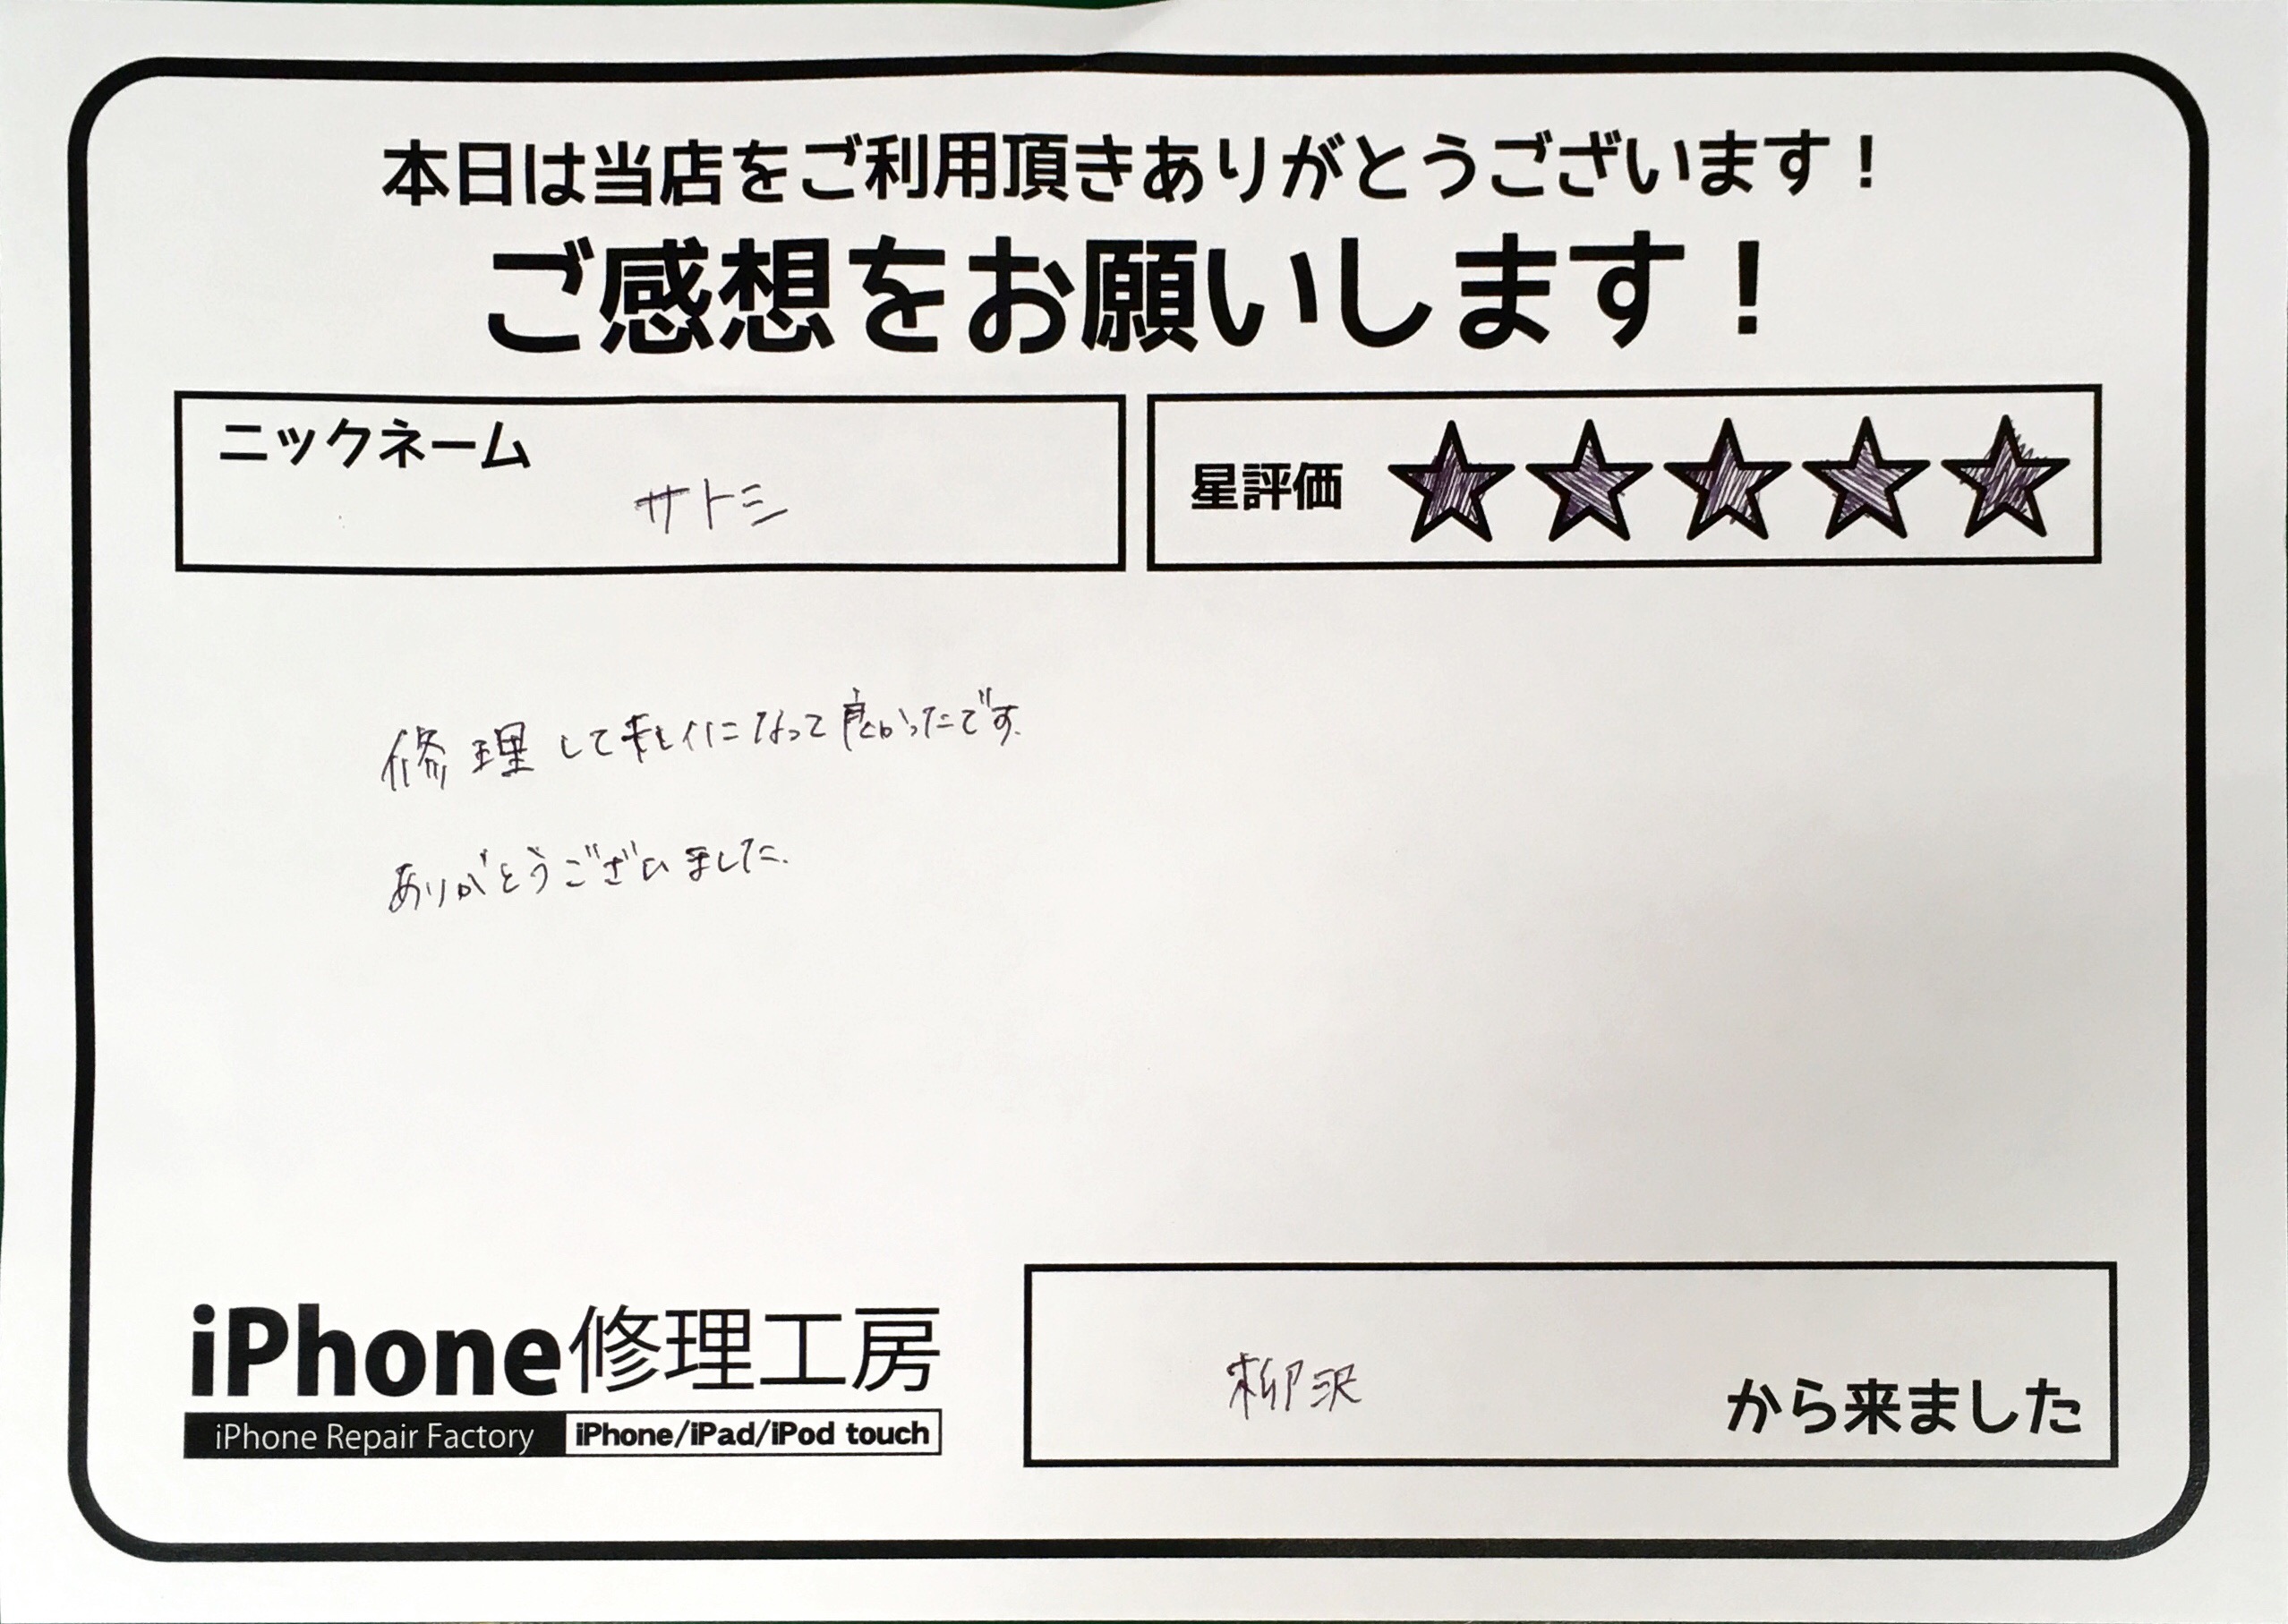 本日は当店をご利用頂きありがとうございます！
ご感想をお願いします！
ニックネーム
サトミ
星評価 ★★★★★
修理してキレイになって良かったです.
ありがとうございました.
iPhone修理工房
iPhone Repair Factory iPhone/iPad/iPod touch
柳沢
から来ました